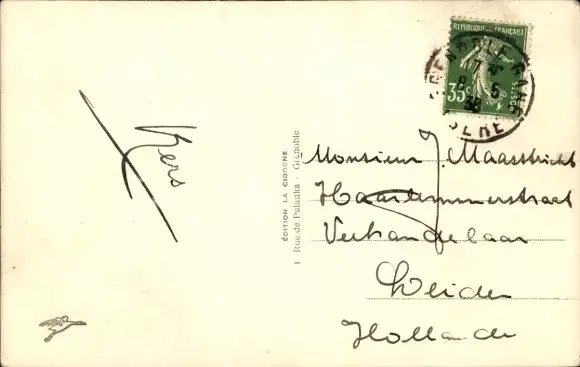 Kers
ÉDITION LA CIGOGNE
1 Rue de Palanka - Grenoble
REPUBLIQUE FRANÇAISE
35c
POSTES
GRENOBLE GARE
ISERE
Monsieur J. Maasstricht
Haarlemmerstraat
Verhandelaar
Leiden
Hollande